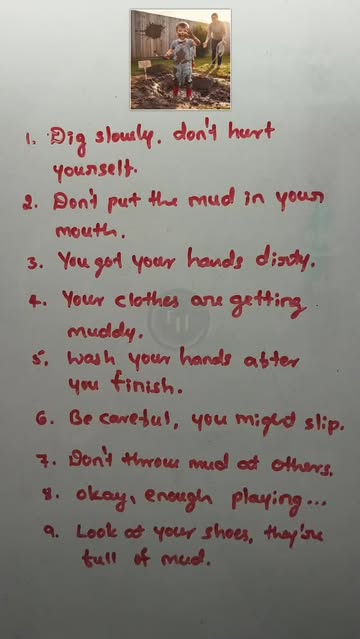 1. Dig slowly, don't hurt
yourself.
2. Don't put the mud in your
mouth.
3. You got your hands dirty.
4. Your clothes are getting
muddy.
5. Wash your hands after
you finish.
6. Be careful, you might slip.
7. Don't throw mud at others.
8. Okay, enough playing...
9. Look at your shoes, they're
full of mud.